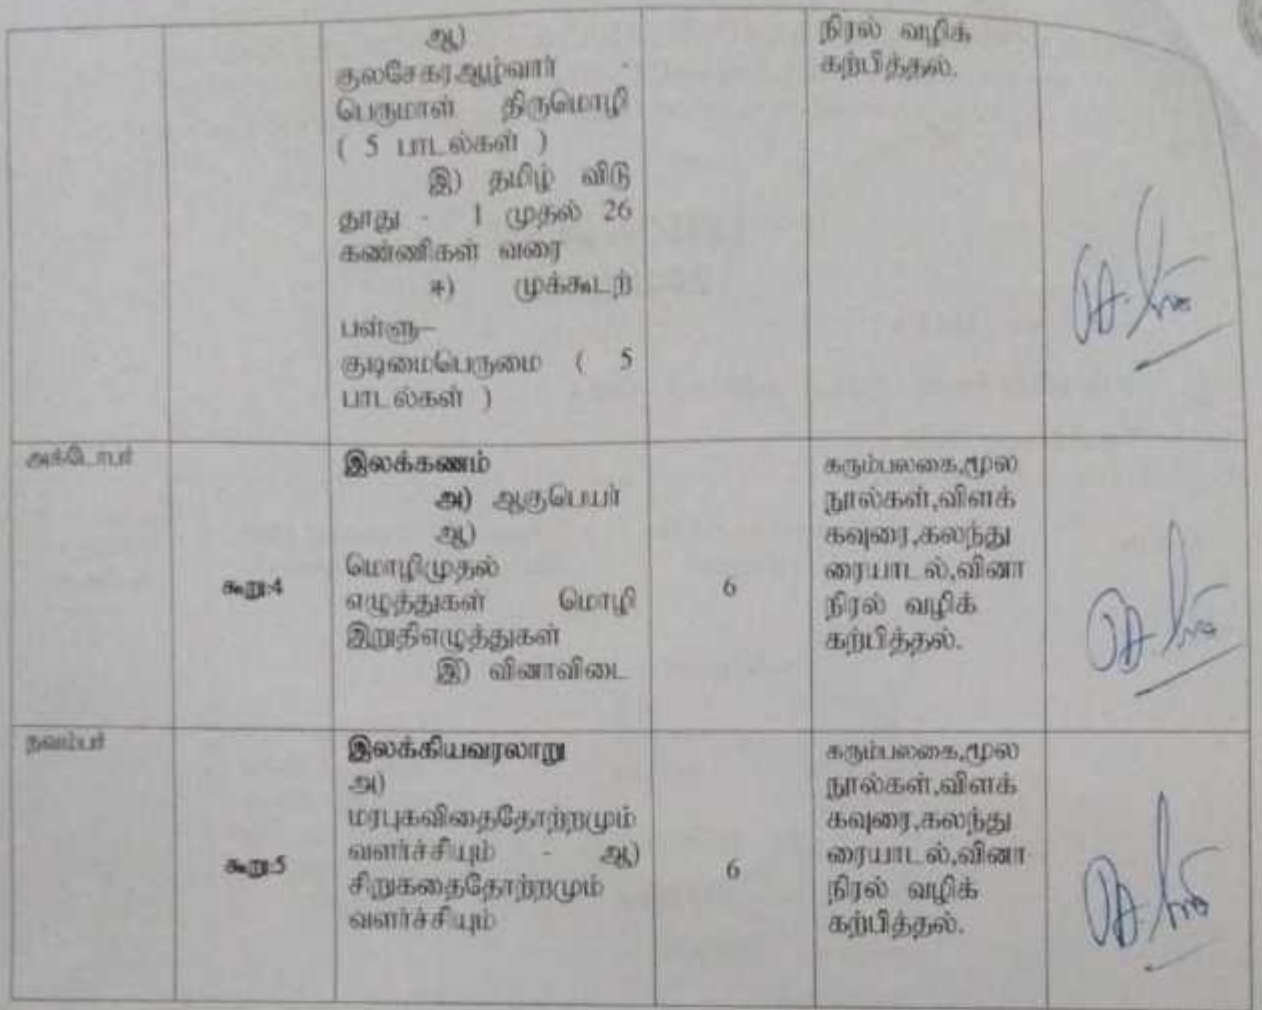 ஆ)
குலசேகரஆழ்வார் -
பெருமாள் திருமொழி
( 5 பாடல்கள் )
இ) தமிழ் விடு
தூது - 1 முதல் 26
கண்ணிகள் வரை
ஈ) முக்கூடற்
பள்ளு–
குடிமைபெருமை ( 5
பாடல்கள் )
நிரல் வழிக்
கற்பித்தல்.
அக்டோபர்
கூறு:4
இலக்கணம்
அ) ஆகுபெயர்
ஆ)
மொழிமுதல்
எழுத்துகள் மொழி
இறுதிஎழுத்துகள்
இ) வினாவிடை
6
கரும்பலகை,மூல
நூல்கள்,விளக்
கவுரை,கலந்து
ரையாடல்,வினா
நிரல் வழிக்
கற்பித்தல்.
நவம்பர்
கூறு:5
இலக்கியவரலாறு
அ)
மரபுகவிதைதோற்றமும்
வளர்ச்சியும் - ஆ)
சிறுகதைதோற்றமும்
வளர்ச்சியும்
6
கரும்பலகை,மூல
நூல்கள்,விளக்
கவுரை,கலந்து
ரையாடல்,வினா
நிரல் வழிக்
கற்பித்தல்.